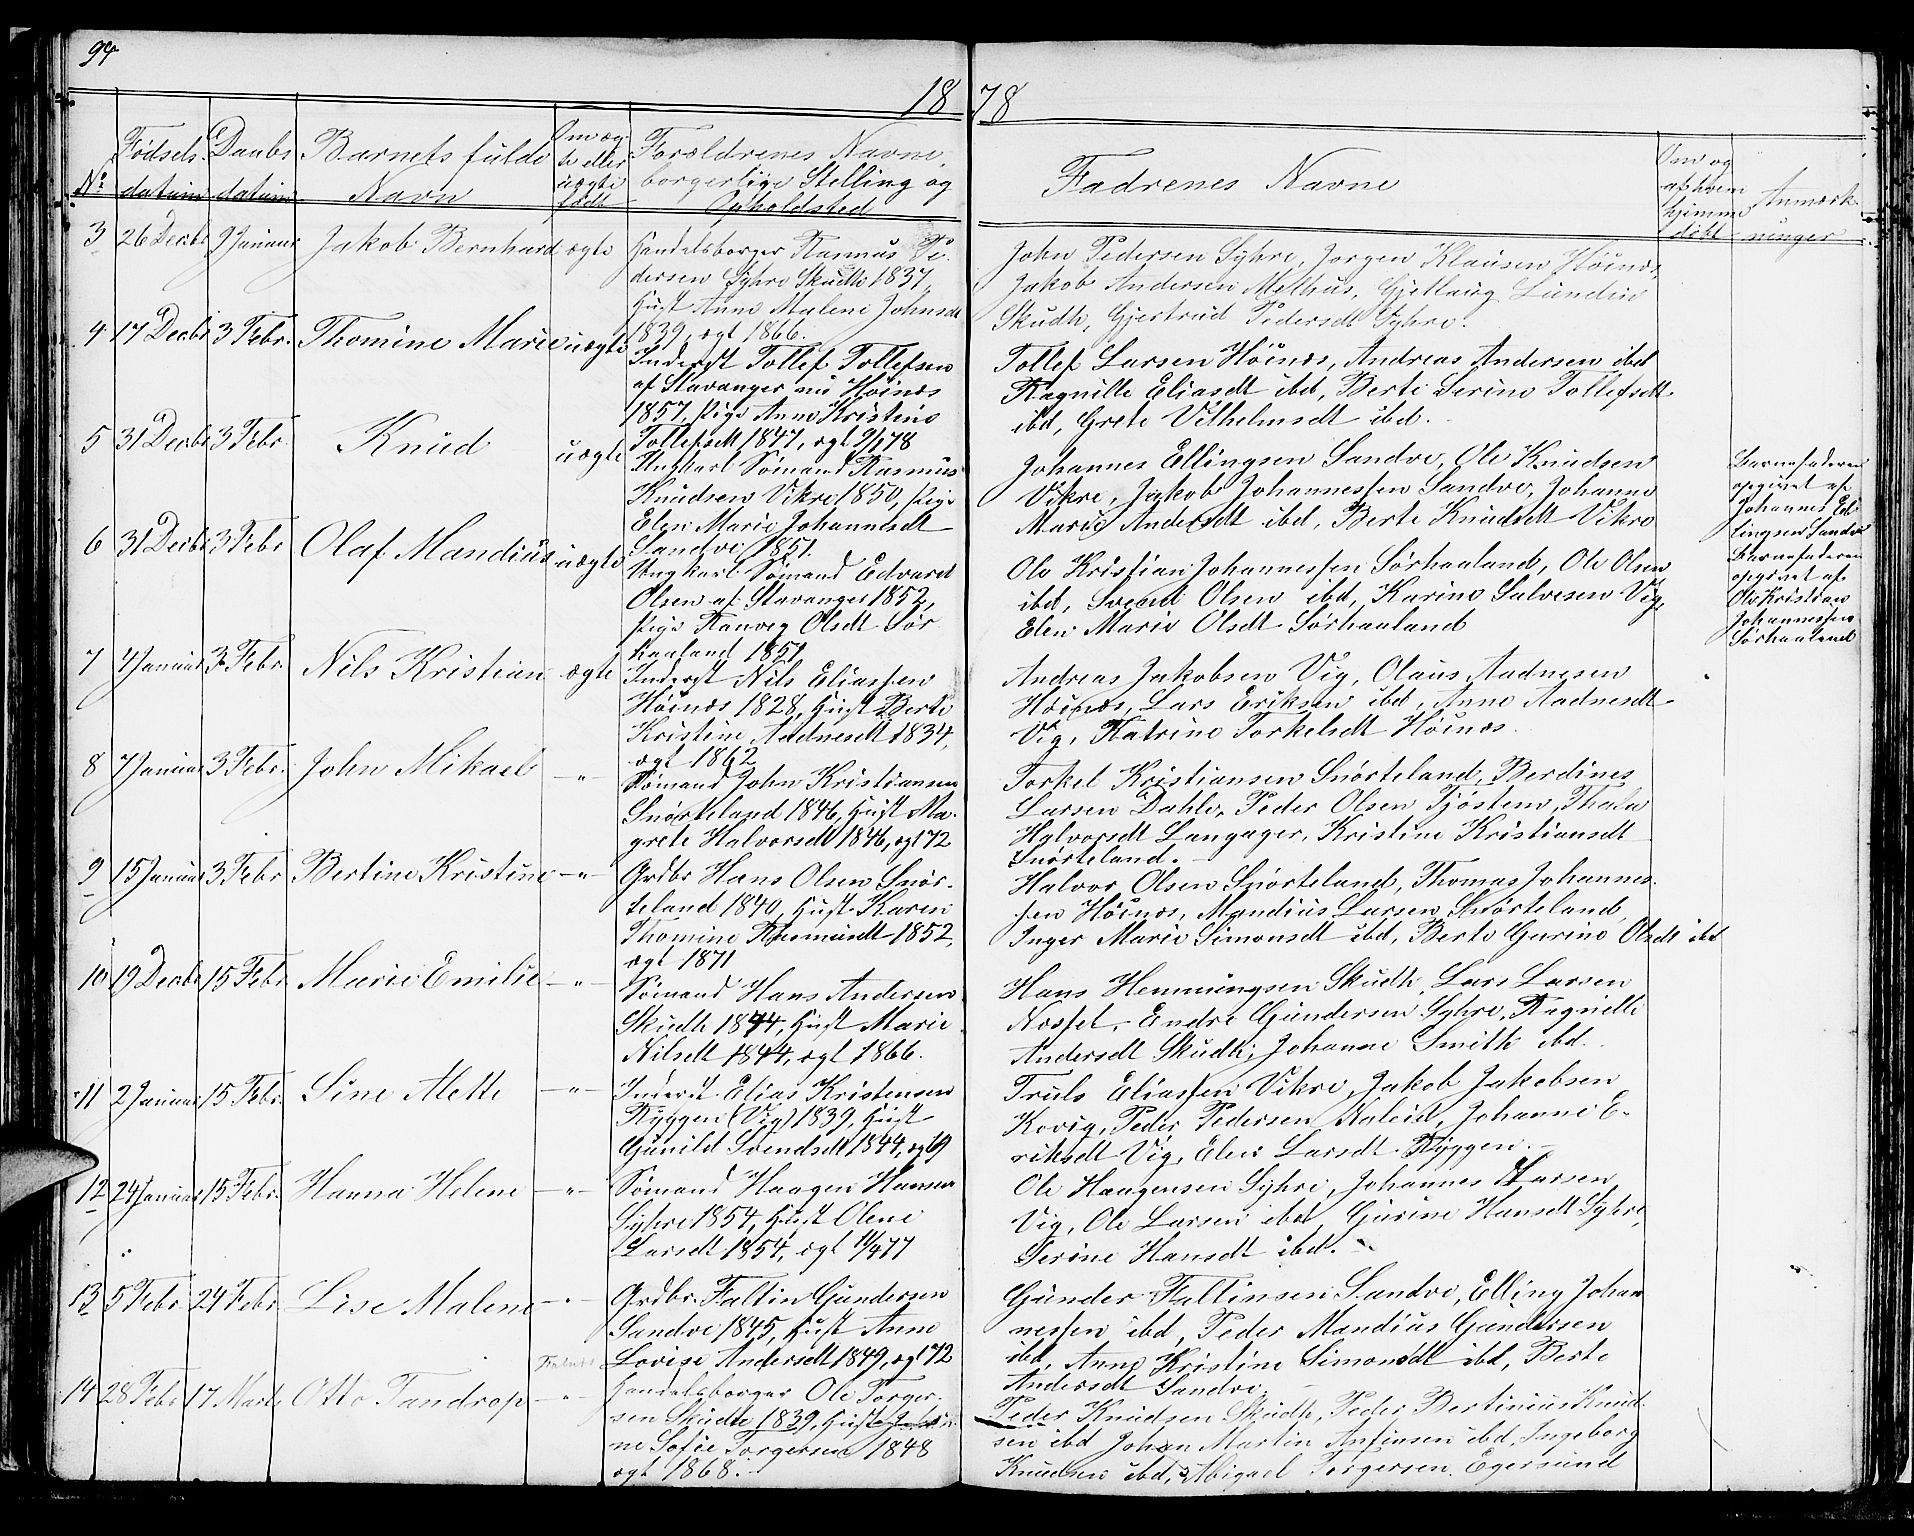 94
18 78
No
Fødsels datum
Daabs datum
Barnets fulde Navn
Om æg-
te eller
uægte
født
Forældrenes Navne,
borgerlige Stelling og
Opholdsted
Fadrenes Navne
Om og
af hvem
hjemme
døbt
Anmærk-
ninger
3 26 Decbr 9 Januar Jakob Bernhard ægte
Handelsborger Rasmus Pe-
dersen Syhre Skudh 1837,
Hust Anne Malene Johnsdt
1839, ægt 1866.
John Pedersen Syhre, Jørgen Klausen Høinæs,
Jakob Andersen Melhus, Gjellaug Lundin
Skudh, Gjertrud Pedersdt Syhre.
4 17 Decbr 3 Febr. Thomine Marie uægte
Inderst Tollef Tollefsen
af Stavanger nu Høinæs
1857, Pige Anne Kristine
Tollefsdt 1847, ægt 9/1 78
Tollef Larsen Høinæs, Andreas Andersen ibd
Ragnille Eliasdt ibd, Berte Serine Tollefsdt
ibd, Grete Vilhelmsdt ibd.
5 31 Decbr 3 Febr Knud uægte
Ungkarl Sømand Rasmus
Knudsen Vikre 1850, Pige
Elen Marie Johannesdt
Sandve 1851.
Johannes Ellingsen Sandve, Ole Knudsen
Vikre, Jakob Johannessen Sandve, Johanne
Marie Andersdt ibd, Berte Knudsdt Vikre
Barnefaderen
opgivet af
Johannes El-
lingsen Sandve
6 31 Decbr 3 Febr Olaf Mandius uægte
Ungkarl Sømand Edvard
Olsen af Stavanger 1852,
Pige Ranveg Olsdt Sør-
haaland 1851
Ole Kristian Johannessen Sørhaaland, Ole Olsen
ibd, Svend Olsen ibd, Karine Salvesen Vig,
Elen Marie Olsdt Sørhaaland
Barnefaderen
opgivet af
Ole Kristian
Johannessen
Sørhaaland
7 4 Januar 3 Febr. Nils Kristian ægte
Inderst Nils Eliassen
Høinæs 1828, Hust Berte
Kristine Aadnesdt 1834,
ægt 1862
Andreas Jakobsen Vig, Olaus Aadnesen
Høinæs, Lars Eriksen ibd, Anne Aadnesdt
Vig, Katrine Torkelsdt Høinæs.
8 7 Januar 3 Febr. John Mikael - " -
Sømand John Kristiansen
Snørteland 1846, Hust Ma-
grete Halvorsdt 1846, ægt 72
Torkel Kristiansen Snørteland, Berdines
Larsen Dahle, Peder Olsen Tjøsten, Thala
Halvorsdt Langager, Kristine Kristiansdt
Snørteland.
9 15 Januar 3 Febr Bertine Kristine - " -
Grdbr Hans Olsen Snør-
teland 1840, Hust Karen
Thomine 1852,
ægt 1871
Halvor Olsen Snørteland, Thomas Johannes-
sen Høinæs, Mandius Larsen Snørteland,
Inger Marie Simonsdt ibd, Berte Gurine Olsdt ibd
10 19 Decbr 15 Febr Marie Emilie - " -
Sømand Hans Andersen
Skudh 1844, Hust Marie
Nilsdt 1844, ægt 1866.
Hans Hemmingsen Skudh, Lars Larsen
Nosfet, Endre Gundersen Syhre, Ragnille
Andersdt Skudh, Johanne Smith ibd.
11 2 Januar 15 Febr. Sine Alette - " -
Inderst Elias Kristensen
Ryggen (Vig) 1839, Hust
Gunild Svendsdt 1844, ægt 69
Truls Eliassen Vikre, Jakob Jakobsen
Kovig, Peder Pedersen Naleid, Johanne E-
riksdt Vig, Elen Larsdt Ryggen.
12 24 Januar 15 Febr. Hanna Helene - " -
Sømand Haagen Hansen
Syhre 1854, Hust Olene
Larsdt 1854, ægt 11/4 77
Ole Haagensen Syhre, Johannes Larsen
Vig, Ole Larsen ibd, Gurine Hansdt Syhre,
Serine Hansdt ibd.
13 5 Febr 24 Febr Lise Malene - " -
Grdbr. Faltin Gundersen
Sandve 1845, Hust Anne
Lovise Andersdt 1849, ægt 72
Gunder Faltinsen Sandve, Elling Johan-
nessen ibd, Peder Mandius Gundersen
ibd, Anne Kristine Simonsdt ibd, Berte
Andersdt Sandve.
14 28 Febr 17 Marts Otto Tandrop - " -
Handelsborger Ole Torger-
sen Skudh 1839, Hust
ne Sofie Torgersen 1848
ægt 1868.
Peder Knudsen Skudh, Peder Bertinius Knud-
sen ibd Johan Martin Anfinsen ibd, Ingeborg
Knudsen ibd, Abigael Torgersen Egersund